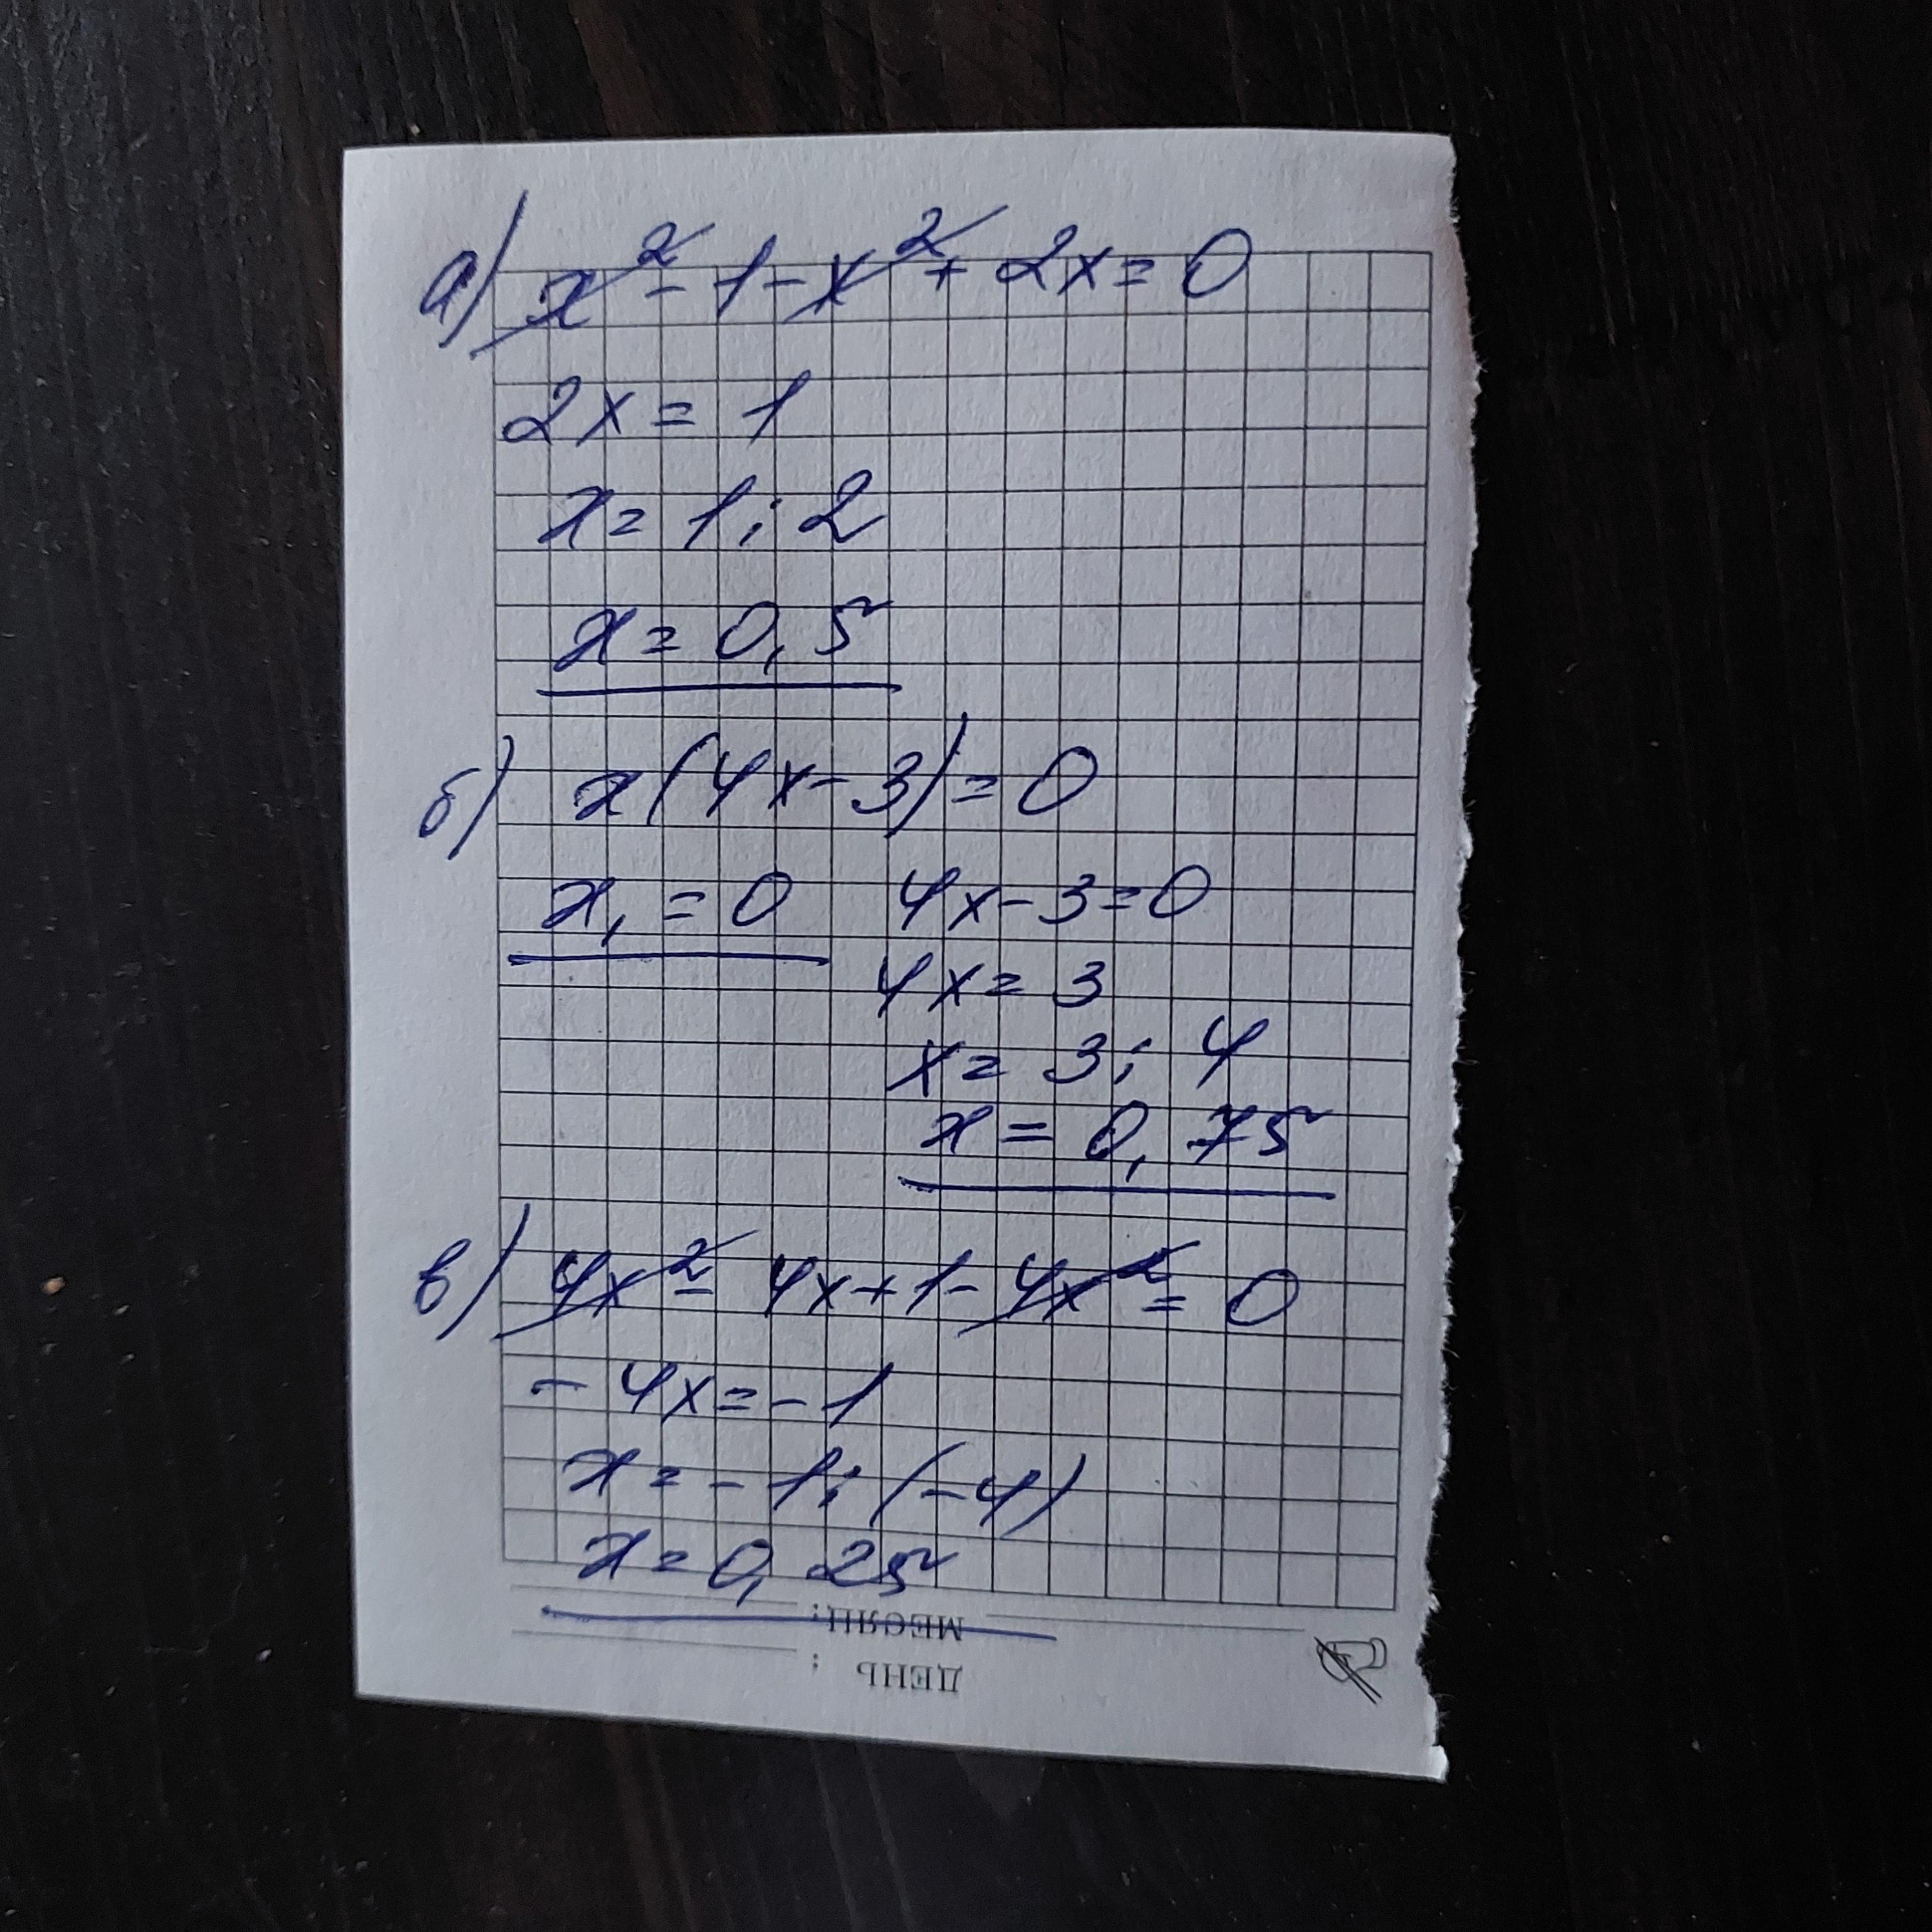 а) x² - 1 - x² + 2x = 0
2x = 1
x = 1 : 2
x = 0,5
б) x(4x - 3) = 0
x₁ = 0 4x - 3 = 0
4x = 3
x = 3 : 4
x = 0,75
в) 4x² - 4x + 1 - 4x² = 0
- 4x = - 1
x = - 1 : (-4)
x = 0,25
МЕСЯЦ:
ДЕНЬ :